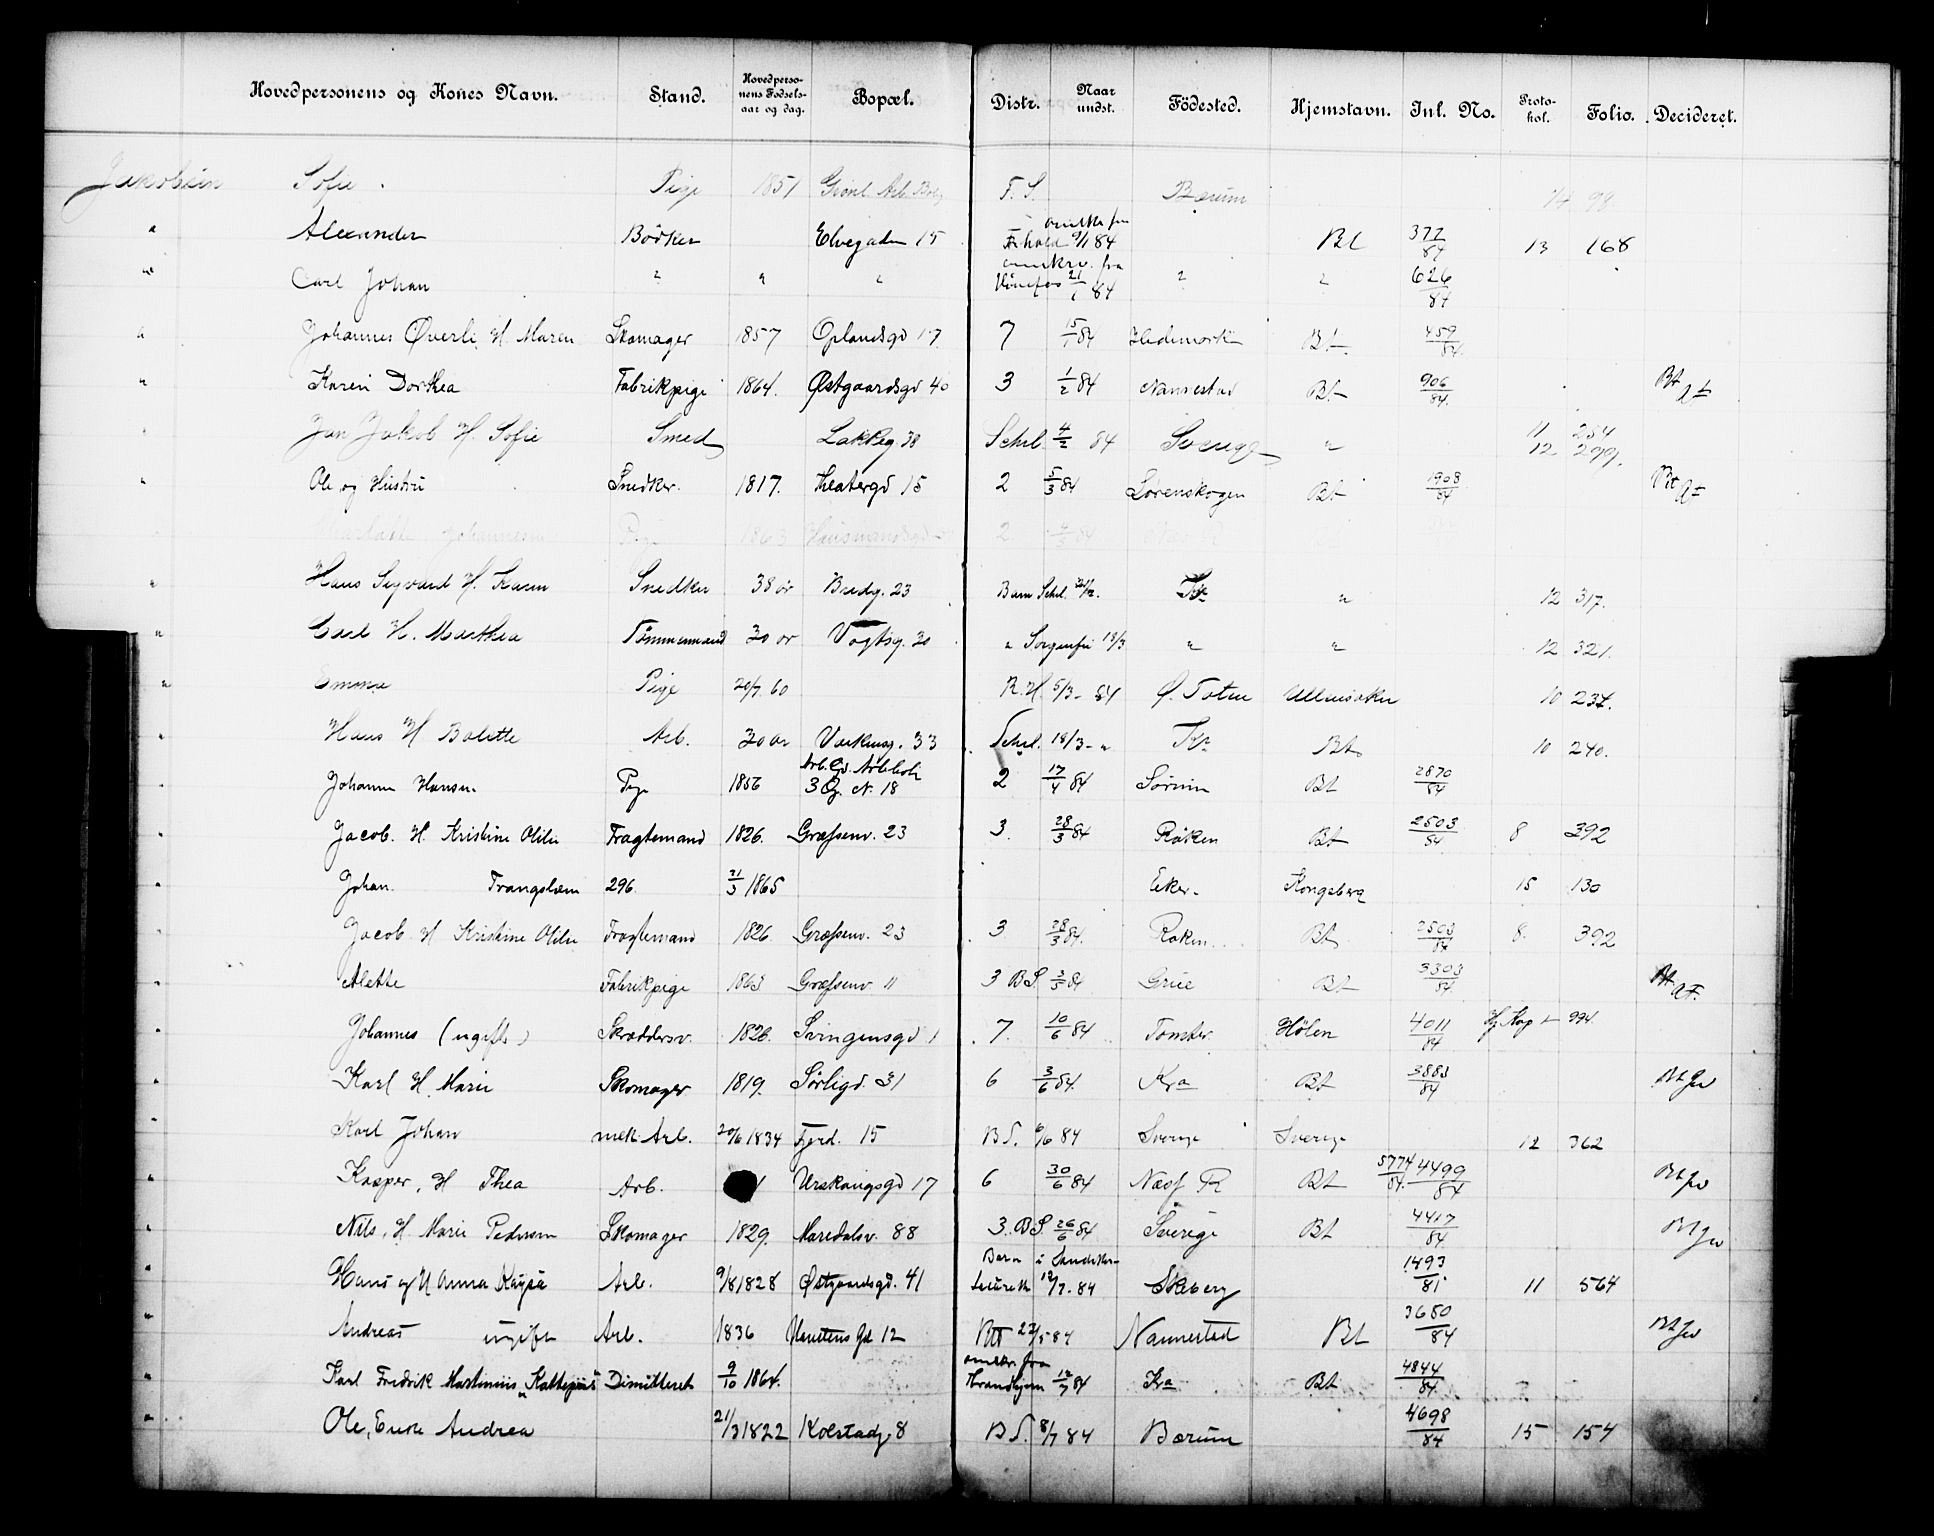 Hovedpersonens og Kones Navn. Stand. Hovedpersonens Fødselsaar og dag. Bopæl. Distr. Naar undst. Födested. Hjemstavn. Inl. No. Protokol. Folio. Decideret.
Jakobsen Sofie Pige 1851 Grønl. Arb. Bol. F. S. Bærum 14 98.
" Alexander Bödker Elvegaden 15 Bt 377/84 13 168
" Carl Johan " " " omskr. fra Hönefos 21/1 84 " " 626/84
" Johannes Øverli, H. Maren Skomager 1857 Oplandsgd 17 7 15/1 84 Hedemark Bt 459/84
" Karen Dorthea Fabrikpige 1864. Østgaardsgd 40 3 1/2 84 Nannestad Bt 906/84.
Jan Jakob H. Sofie Smed Lakkeg. 38 Schrl. 4/2 84 Sverige " 11 254 12 299.
" Ole og Hustru Snedker. 1817. Theatergd 15 2 5/3 84 Lørenskogen Bt 1908/84
Johannesen Pige 1863 Hausmandsgd 2 4/3 84
" Hans Sigvard H. Karen Snedker 38 år Bredg. 23 Barn Schrl. Kr. " 12 317.
" Carl H. Marthea Tömmermand 30 år Vogtsg. 30 " Sorgenfri 18/3 " " 12 321.
" Emma Pige 20/7. 60 R. H. 5/3 - 84 Ø. Toten Ullensaker 10 237.
" Hans H Bolette Arb. 30 år 33 Schrl. 18/3 - " Kr. Bt 10 240.
Johanne Hansen Pige 1856 3 Og. N. 18 2 17/4 84 Sörum Bt 2870/84
" Jacob. H. Kristine Olilie Fragtemand 1826. Græfsenv. 23 3. 28/3 84 Röken Bt 2503/84 8 392
" Johan. Trangslæm 296. 21/3 1865 Eker. Kongsberg 15 130
" Jacob. H Kristine Olilie Fragtemand 1826. Græfsenv. 23 3 28/3 84. Röken Bt 2503/84 8. 392
" Alette Fabrikpige 1863 Græfsenv 11 3 BS. 3/5 84 Grue Bt 3303/84.
" Johannes (ugift) Skræddersv. 1826. Svingensgd 1 7. 10/6 84 Tomter Hölen 4011/84 994.
" Karl H. Marie Skomager 1819. Sörligd. 31 6 3/6 84. Kra Bt 3883/84
" Karl Johan mek. Arb. 20/6 1834 Fjerd. 15 B S. 6/6 84 Sverige Sverige 12 362
" Kasper, H Thea Arb. 1 Urskougsgd 17 6 30/6 84 Næs R Bt 5774/84. 4499/84
" Nils, H. Marie Pedersen Skomager 1829. Maredalsv. 88 3. BS. 26/6 84 Sverige Bt 4417/84
" Hans og H Anna Kajsa Arb. 9/8 1828 Østgaardsgd. 41 Barn i 12/7. 84 Skeberg 1493/81 11 564
" Andreas ugift Arb. 1836 12 22/5 84 Nannestad Bt 3680/84
" Karl Fredrik Martinius Dimitteret 9/10 1864. omskr. fra Throndhjem 12/7 84 Kra Bt 4844/84
" Ole, Enke Andrea 21/3 1822 Kolstadg. 8 B S. 8/7 84 Bærum 4698/84 15 154